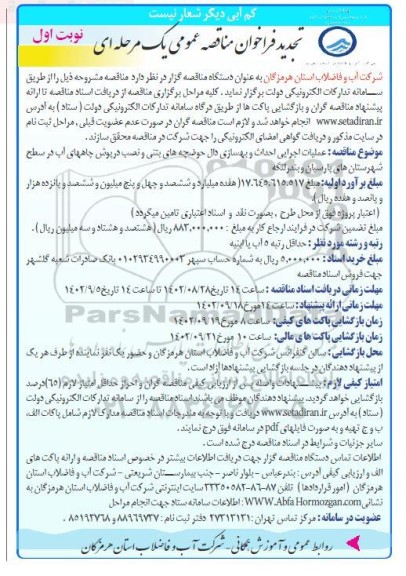 کم آبی دیگر شعار نیست
تجدید فراخوان مناقصه عمومی یک مرحله ای
نوبت اول
شرکت آب و فاضلاب استان هرمزگان به عنوان دستگاه مناقصه گزار در نظر دارد مناقصه مشروحه ذیل را از طریق
سامانه تدارکات الکترونیکی دولت برگزار نماید . کلیه مراحل برگزاری مناقصه از دریافت اسناد مناقصه تا ارائه
پیشنهاد مناقصه گران و بازگشایی پاکت ها از طریق درگاه سامانه تدارکات الکترونیکی دولت ( ستاد ) به آدرس
www.setadiran.ir انجام خواهد شد و لازم است مناقصه گران در صورت عدم عضویت قبلی ، مراحل ثبت نام
در سایت مذکور و دریافت گواهی امضای الکترونیکی را جهت شرکت در مناقصه محقق سازند .
موضوع مناقصه : عملیات اجرایی احداث و بهسازی دال حوضچه های بتنی و نصب درپوش چاههای آب در سطح
شهرستان های پارسیان و بندرلنگه
مبلغ برآورد اولیه: مبلغ ۱۷.۶۴۵.۶۱۵.۵۱۷ (هفده میلیارد و ششصد و چهل و پنج میلیون و ششصد و پانزده هزار
و پانصد و هفده ریال)
(اعتبار پروژه فوق از محل طرح ، بصورت نقد و اسناد اعتباری تامین میگردد )
مبلغ تضمین شرکت در فرایند ارجاع کار به مبلغ : ۸۸۳.۰۰۰.۰۰۰ ریال ( هشتصد و هشتاد و سه میلیون ریال ) .
رتبه و رشته مورد نظر : حداقل رتبه ۵ آب یا ابنیه
مبلغ خرید اسناد : ۵.۰۰۰.۰۰۰ ریال به شماره حساب سپهر ۰۱۰۲۹۲۴۹۹۰۰۰۲ بانک صادرات شعبه گلشهر
جهت فروش اسناد مناقصه
مهلت زمانی دریافت اسناد مناقصه : ساعت ۱۴ تاریخ ۱۴۰۲/۰۸/۲۸ تا ساعت ۱۴ تاریخ ۱۴۰۲/۹/۵
مهلت زمانی ارائه پیشنهاد : ساعت ۱۴ مورخ ۱۴۰۲/۰۹/۱۸
زمان بازگشایی پاکت های کیفی: ساعت ۸ مورخ ۱۴۰۲/۰۹/۱۹
زمان بازگشایی پاکت های مالی: ساعت ۱۰ مورخ ۱۴۰۲/۰۹/۲۱
محل بازگشایی : سالن کنفرانس شرکت آب و فاضلاب استان هرمزگان و حضور یک نفر نماینده از طرف هر یک
از پیشنهاد دهندگان در جلسه بازگشایی پیشنهادها آزاد است.
امتیاز کیفی لازم : پیشنهادات واصله پس از ارزیابی کیفی مناقصه گران و احراز حداقل امتیاز لازم (۶۵)درصد
بازگشایی خواهد گردید . پیشنهاد دهندگان موظف می باشند اسناد مناقصه را از سامانه تدارکات الکترونیکی دولت
( ستاد ) به آدرس www.setadiran.ir دریافت و با توجه به مندرجات اسناد مناقصه مدارک لازم شامل پاکات الف
ب و ج تهیه و به صورت فایلهای pdf در سامانه فوق درج نمایند .
سایر جزئیات و شرایط در اسناد مناقصه درج شده است .
اطلاعات تماس دستگاه مناقصه گزار جهت دریافت اطلاعات بیشتر در خصوص اسناد مناقصه و ارائه پاکت های
الف و ارزیابی کیفی آدرس : بندرعباس - بلوار ناصر - جنب بیمارستان شریعتی - شرکت آب و فاضلاب استان
هرمزگان (امور قراردادها ) تلفن ۸۷-۸۶-۳۳۳۵۰۵۸۲ سایت اینترنتی شرکت آب و فاضلاب استان هرمزگان به
نشانی WWW.Abfa Hormozgan.com : اطلاعات سامانه ستاد جهت انجام مراحل
عضویت در سامانه : مرکز تماس تهران : ۲۷۳۱۳۱۳۱ دفتر ثبت نام : ۸۸۹۶۹۷۳۷ و ۸۵۱۹۳۷۶۸ .
روابط عمومی و آموزش همگانی - شرکت آب و فاضلاب استان هرمزگان